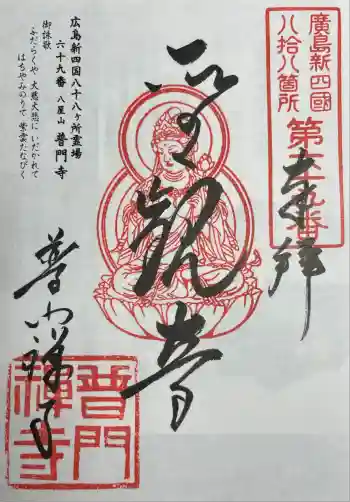 廣島新四國
八拾八箇所
第六十九番
奉拝
聖観音
広島新四国八十八ヶ所霊場
六十九番 八屋山 普門寺
御詠歌
ふだらくや 大慈大悲に いだかれて
はちやみのりて 紫雲たなびく
普門禅寺
普門
禅寺